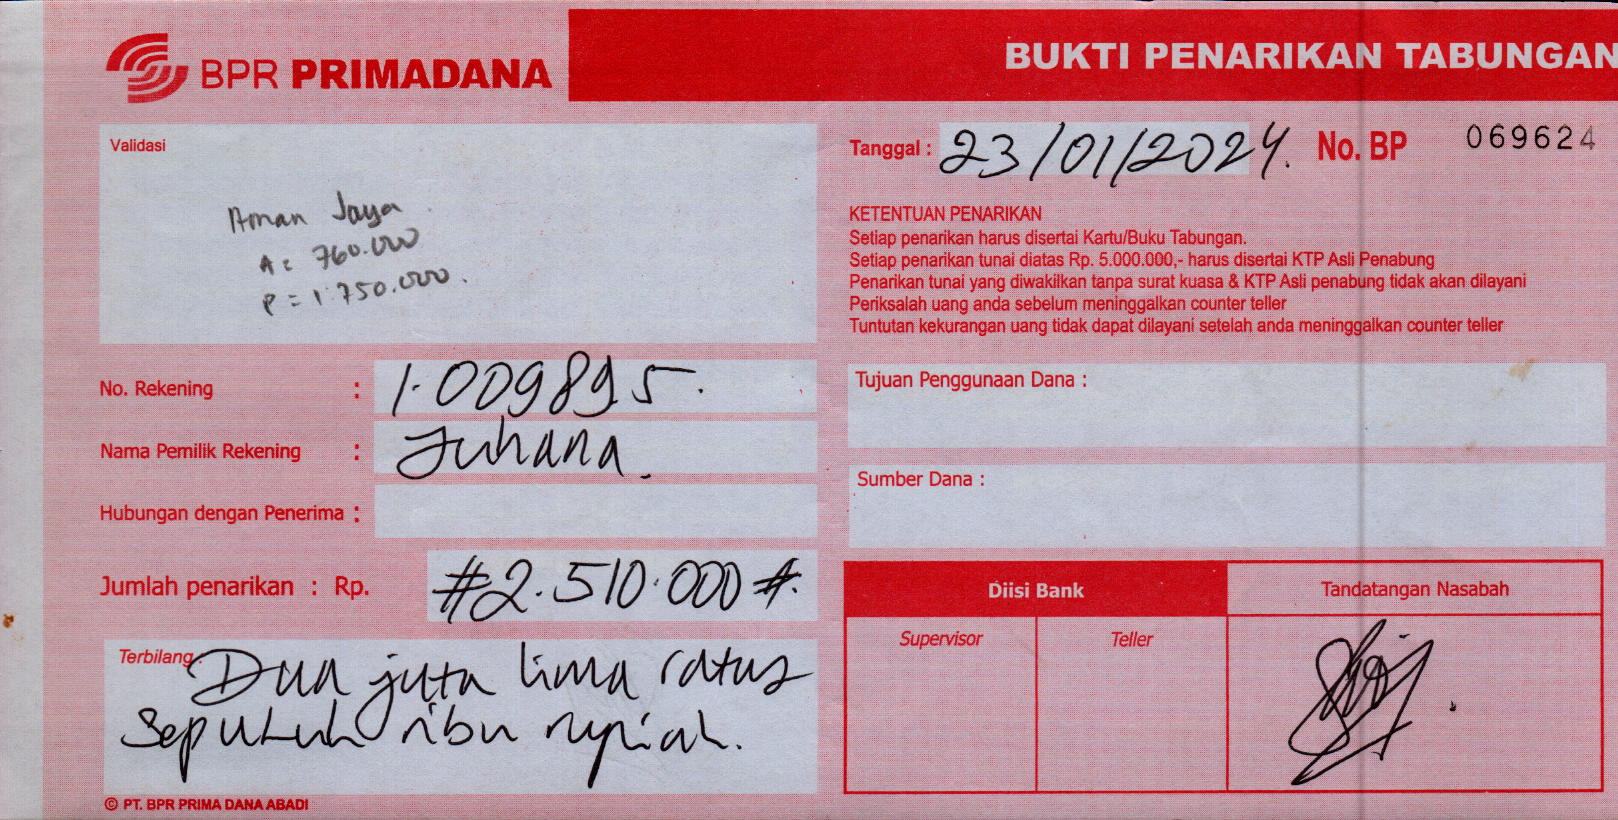 BPR PRIMADANA
BUKTI PENARIKAN TABUNGAN
Validasi
Aman Jaya
A = 760.000
P = 1.750.000.
Tanggal : 23/01/2024.
No. BP 069624
KETENTUAN PENARIKAN
Setiap penarikan harus disertai Kartu/Buku Tabungan.
Setiap penarikan tunai diatas Rp. 5.000.000,- harus disertai KTP Asli Penabung
Penarikan tunai yang diwakilkan tanpa surat kuasa & KTP Asli penabung tidak akan dilayani
Periksalah uang anda sebelum meninggalkan counter teller
Tuntutan kekurangan uang tidak dapat dilayani setelah anda meninggalkan counter teller
No. Rekening : 1.009895.
Nama Pemilik Rekening : Juhana.
Hubungan dengan Penerima :
Jumlah penarikan : Rp. #2.510.000#.
Terbilang : Dua juta lima ratus
sepuluh ribu rupiah.
Tujuan Penggunaan Dana :
Sumber Dana :
Diisi Bank
Tandatangan Nasabah
Supervisor
Teller
© PT. BPR PRIMA DANA ABADI